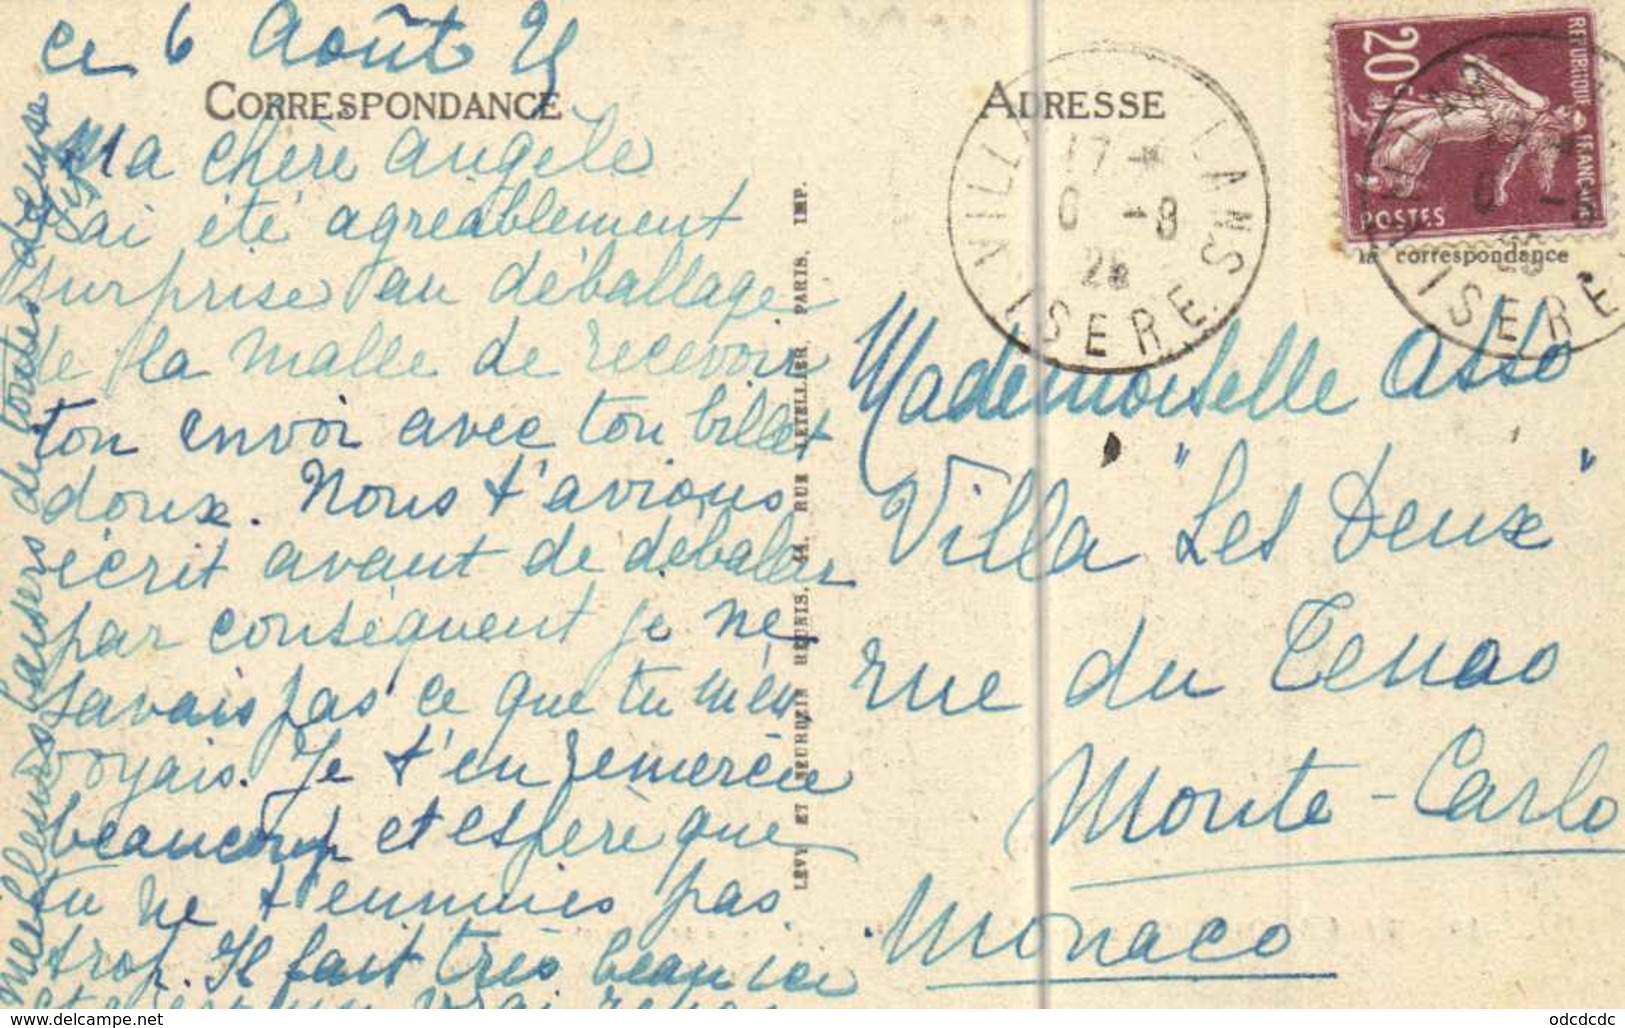 ce 6 Août 25
CORRESPONDANCE
Ma chère Angèle
J'ai été agréablement
surprise au déballage
de la malle de recevoir
ton envoi avec ton billet
doux. Nous t'avions
écrit avant de déballer
par conséquent je ne
savais pas ce que tu m'en
voyais. Je t'en remercie
beaucoup et espère que
tu ne t'ennuies pas
trop. Il fait très beau ici
et c'est un vrai repos
meilleurs baisers de toutes deux
LEVY ET NEURDEIN REUNIS, 44, RUE LETELLIER, PARIS, IMP.
ADRESSE
VILLARD LANS
17
6 -8
25
ISERE
20c
REPUBLIQUE FRANÇAISE
POSTES
la correspondance
ISERE
Mademoiselle Asso
Villa "Les Deux"
rue du Tenao
Monte-Carlo
Monaco
odcdcdc